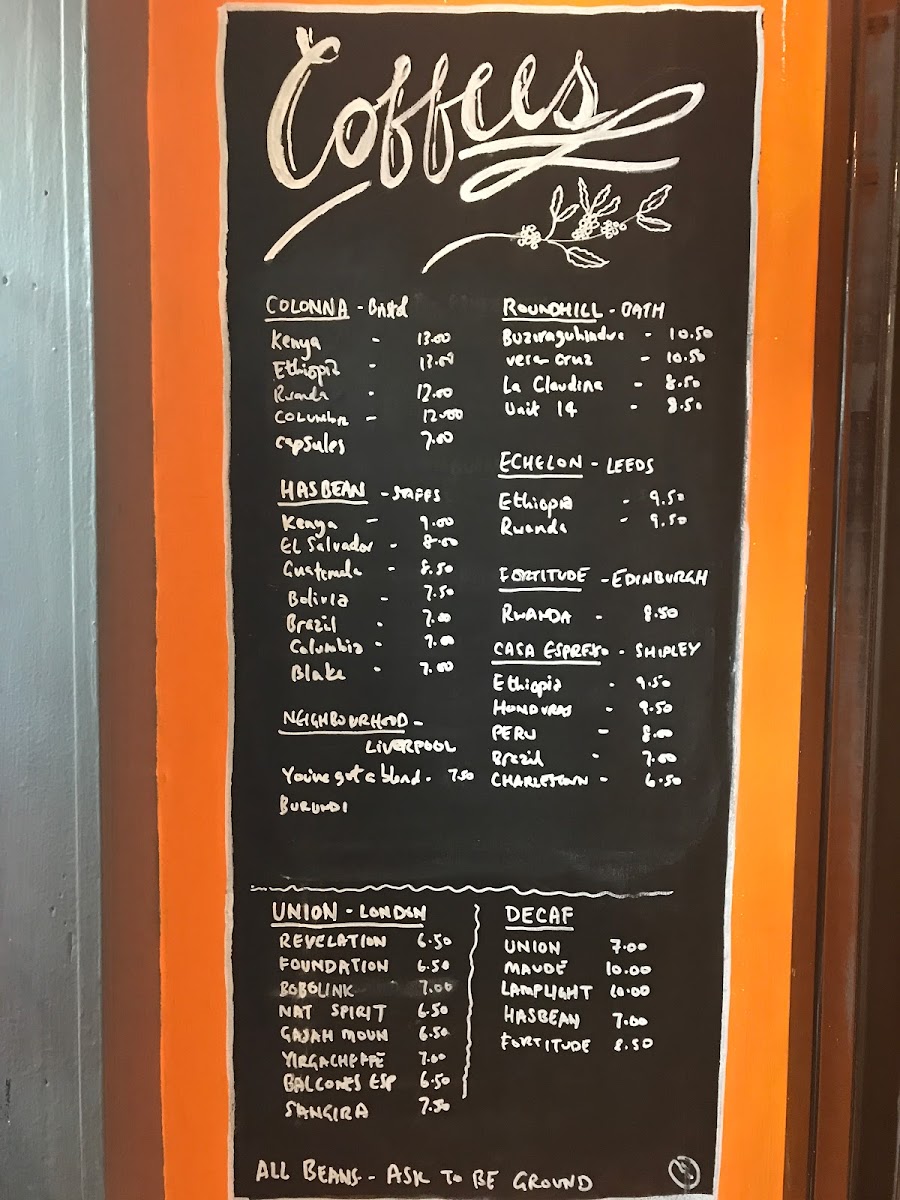 Coffees
COLONNA - Bristol
Kenya - 13.00
Ethiopia - 13.00
Rwanda - 12.00
COLUMBIA - 12.00
capsules 7.00
HASBEAN - STAFFS
Kenya - 9.00
EL Salvador - 8.00
Guatemala - 8.50
Bolivia - 7.50
Brazil - 7.00
Columbia - 7.00
Blake - 7.00
NEIGHBOURHOOD -
LIVERPOOL
You've got a blend - 7.50
BURUNDI
ROUNDHILL - BATH
- 10.50
vera cruz - 10.50
La Claudina - 8.50
Unit 14 - 8.50
ECHELON - LEEDS
Ethiopia - 9.50
Rwanda - 9.50
FORTITUDE - EDINBURGH
RWANDA - 8.50
CASA ESPRESSO - SHIPLEY
Ethiopia - 9.50
HONDURAS - 9.50
PERU - 8.00
Brazil - 7.00
CHARLESTOWN - 6.50
UNION - LONDON
REVELATION 6.50
FOUNDATION 6.50
BOBOLINK 7.00
NAT SPIRIT 6.50
GAJAH MOUN 6.50
YIRGACHEFFE 7.00
BALCONES ESP 6.50
SANGIRA 7.50
DECAF
UNION 7.00
MAUDE 10.00
LAMPLIGHT 10.00
HASBEAN 7.00
FORTITUDE 8.50
ALL BEANS - ASK TO BE GROUND